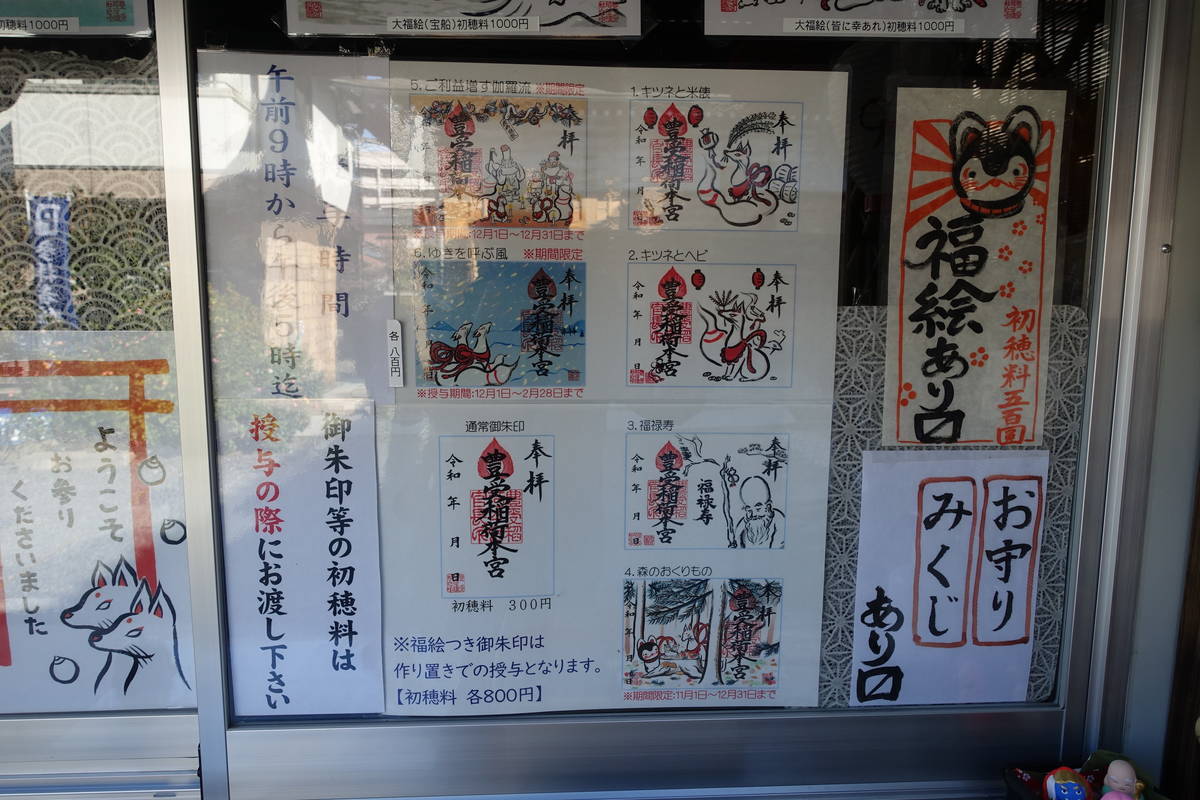 初穂料1000円
大福絵(宝船)初穂料1000円
大福絵(皆に幸あれ)初穂料1000円
時間
午前9時から午後5時迄
各 八百円
御朱印等の初穂料は
授与の際にお渡し下さい
5. ご利益増す伽羅流 ※期間限定
奉拝
豊受稲荷本宮
期間:12月1日～12月31日まで
6. ゆきを呼ぶ風 ※期間限定
奉拝
豊受稲荷本宮
令和 年 月 日
※授与期間:12月1日～2月28日まで
通常御朱印
奉拝
豊受稲荷本宮
令和 年 月 日
初穂料 300円
※福絵つき御朱印は
作り置きでの授与となります。
【初穂料 各800円】
1. キツネと米俵
奉拝
豊受稲荷本宮
令和 年 月 日
2. キツネとヘビ
奉拝
豊受稲荷本宮
令和 年 月 日
3. 福禄寿
奉拝
福禄寿
豊受稲荷本宮
令和 年 月 日
4. 森のおくりもの
奉拝
豊受稲荷本宮
令和 年 月 日
※期間限定:11月1日～12月31日まで
福絵あり〼
初穂料五百圓
お守り
みくじ
あり〼
ようこそ
お参り
くださいました